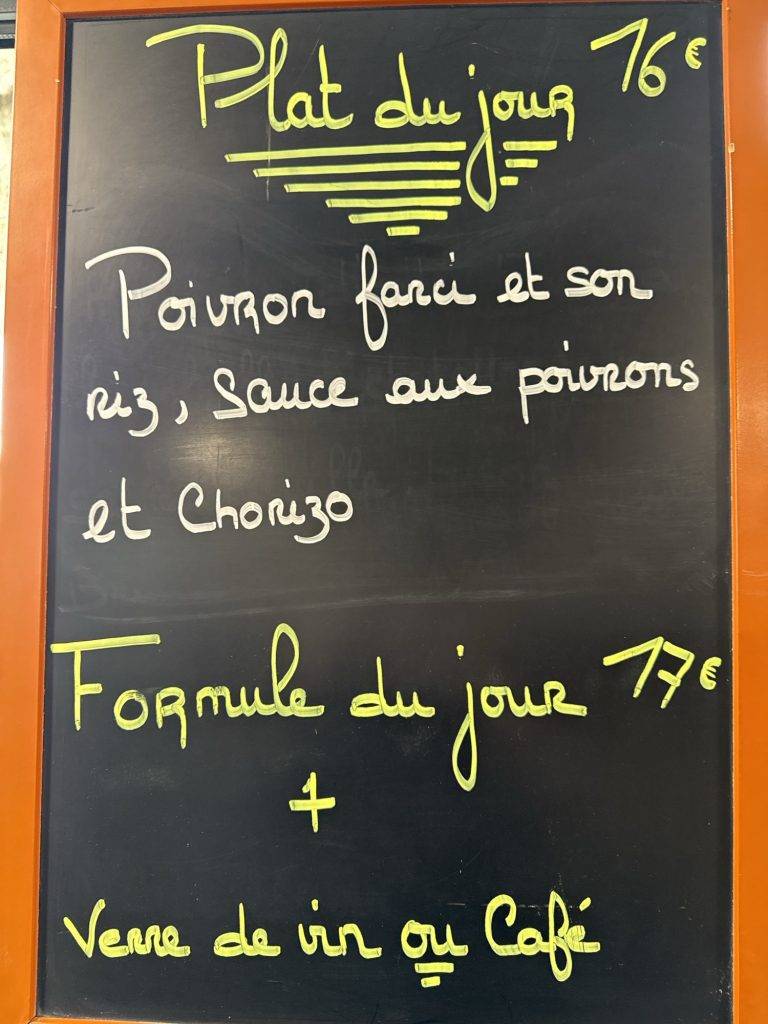 Plat du jour 16€
Poivron farci et son
riz, Sauce aux poivrons
et Chorizo
Formule du jour 17€
+
Verre de vin ou Café